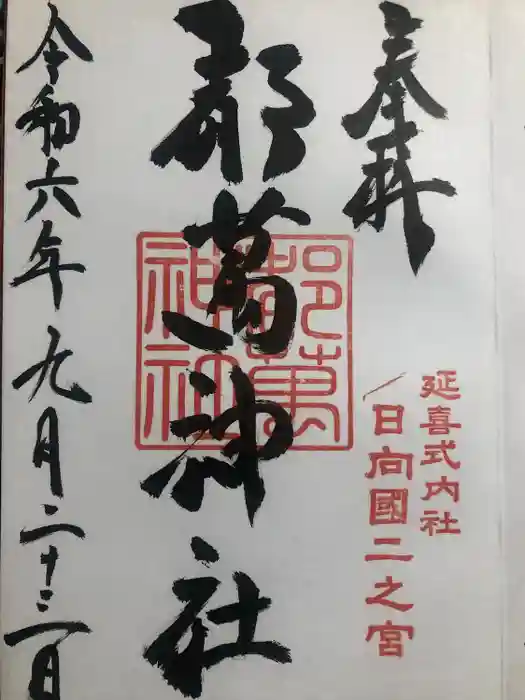 奉拝
延喜式内社
日向國二之宮
都萬神社
都萬
神社
令和六年九月二十三日